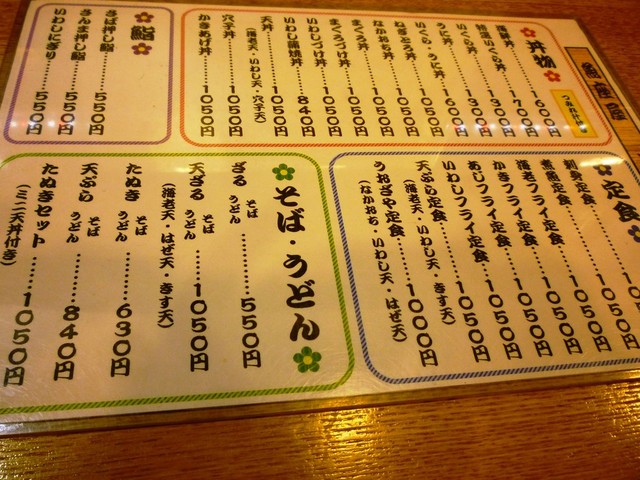 魚屋路
つみれ汁付
丼物
海鮮丼……1600円
特選いくら丼……1700円
いくら丼……1300円
うに丼……1600円
いくら・うに丼……1050円
ねぎとろ丼……1050円
なかおち丼……1050円
まぐろ丼……1050円
まぐろづけ丼……1050円
いわしづけ丼……1050円
いわし蒲焼丼……840円
天丼……1050円
(海老天・いわし天・穴子天)
穴子丼……1050円
かきあげ丼……1050円
鮨
さば押し鮨……550円
さんま押し鮨……550円
いわしにぎり……550円
定食
刺身定食
煮魚定食
海老フライ定食……1050円
かきフライ定食……1050円
あじフライ定食……1050円
いわしフライ定食……1050円
天ぷら定食……1050円
(海老天・いわし天・きす天)
うおぎや定食……1000円
(なかおち・いわし天・はぜ天)
そば・うどん
ざる そば うどん……550円
天ざる そば うどん……1050円
(海老天・はぜ天・きす天)
たぬき そば うどん……630円
天ぷら そば うどん……840円
たぬきセット……1050円
(ミニ天丼付き)